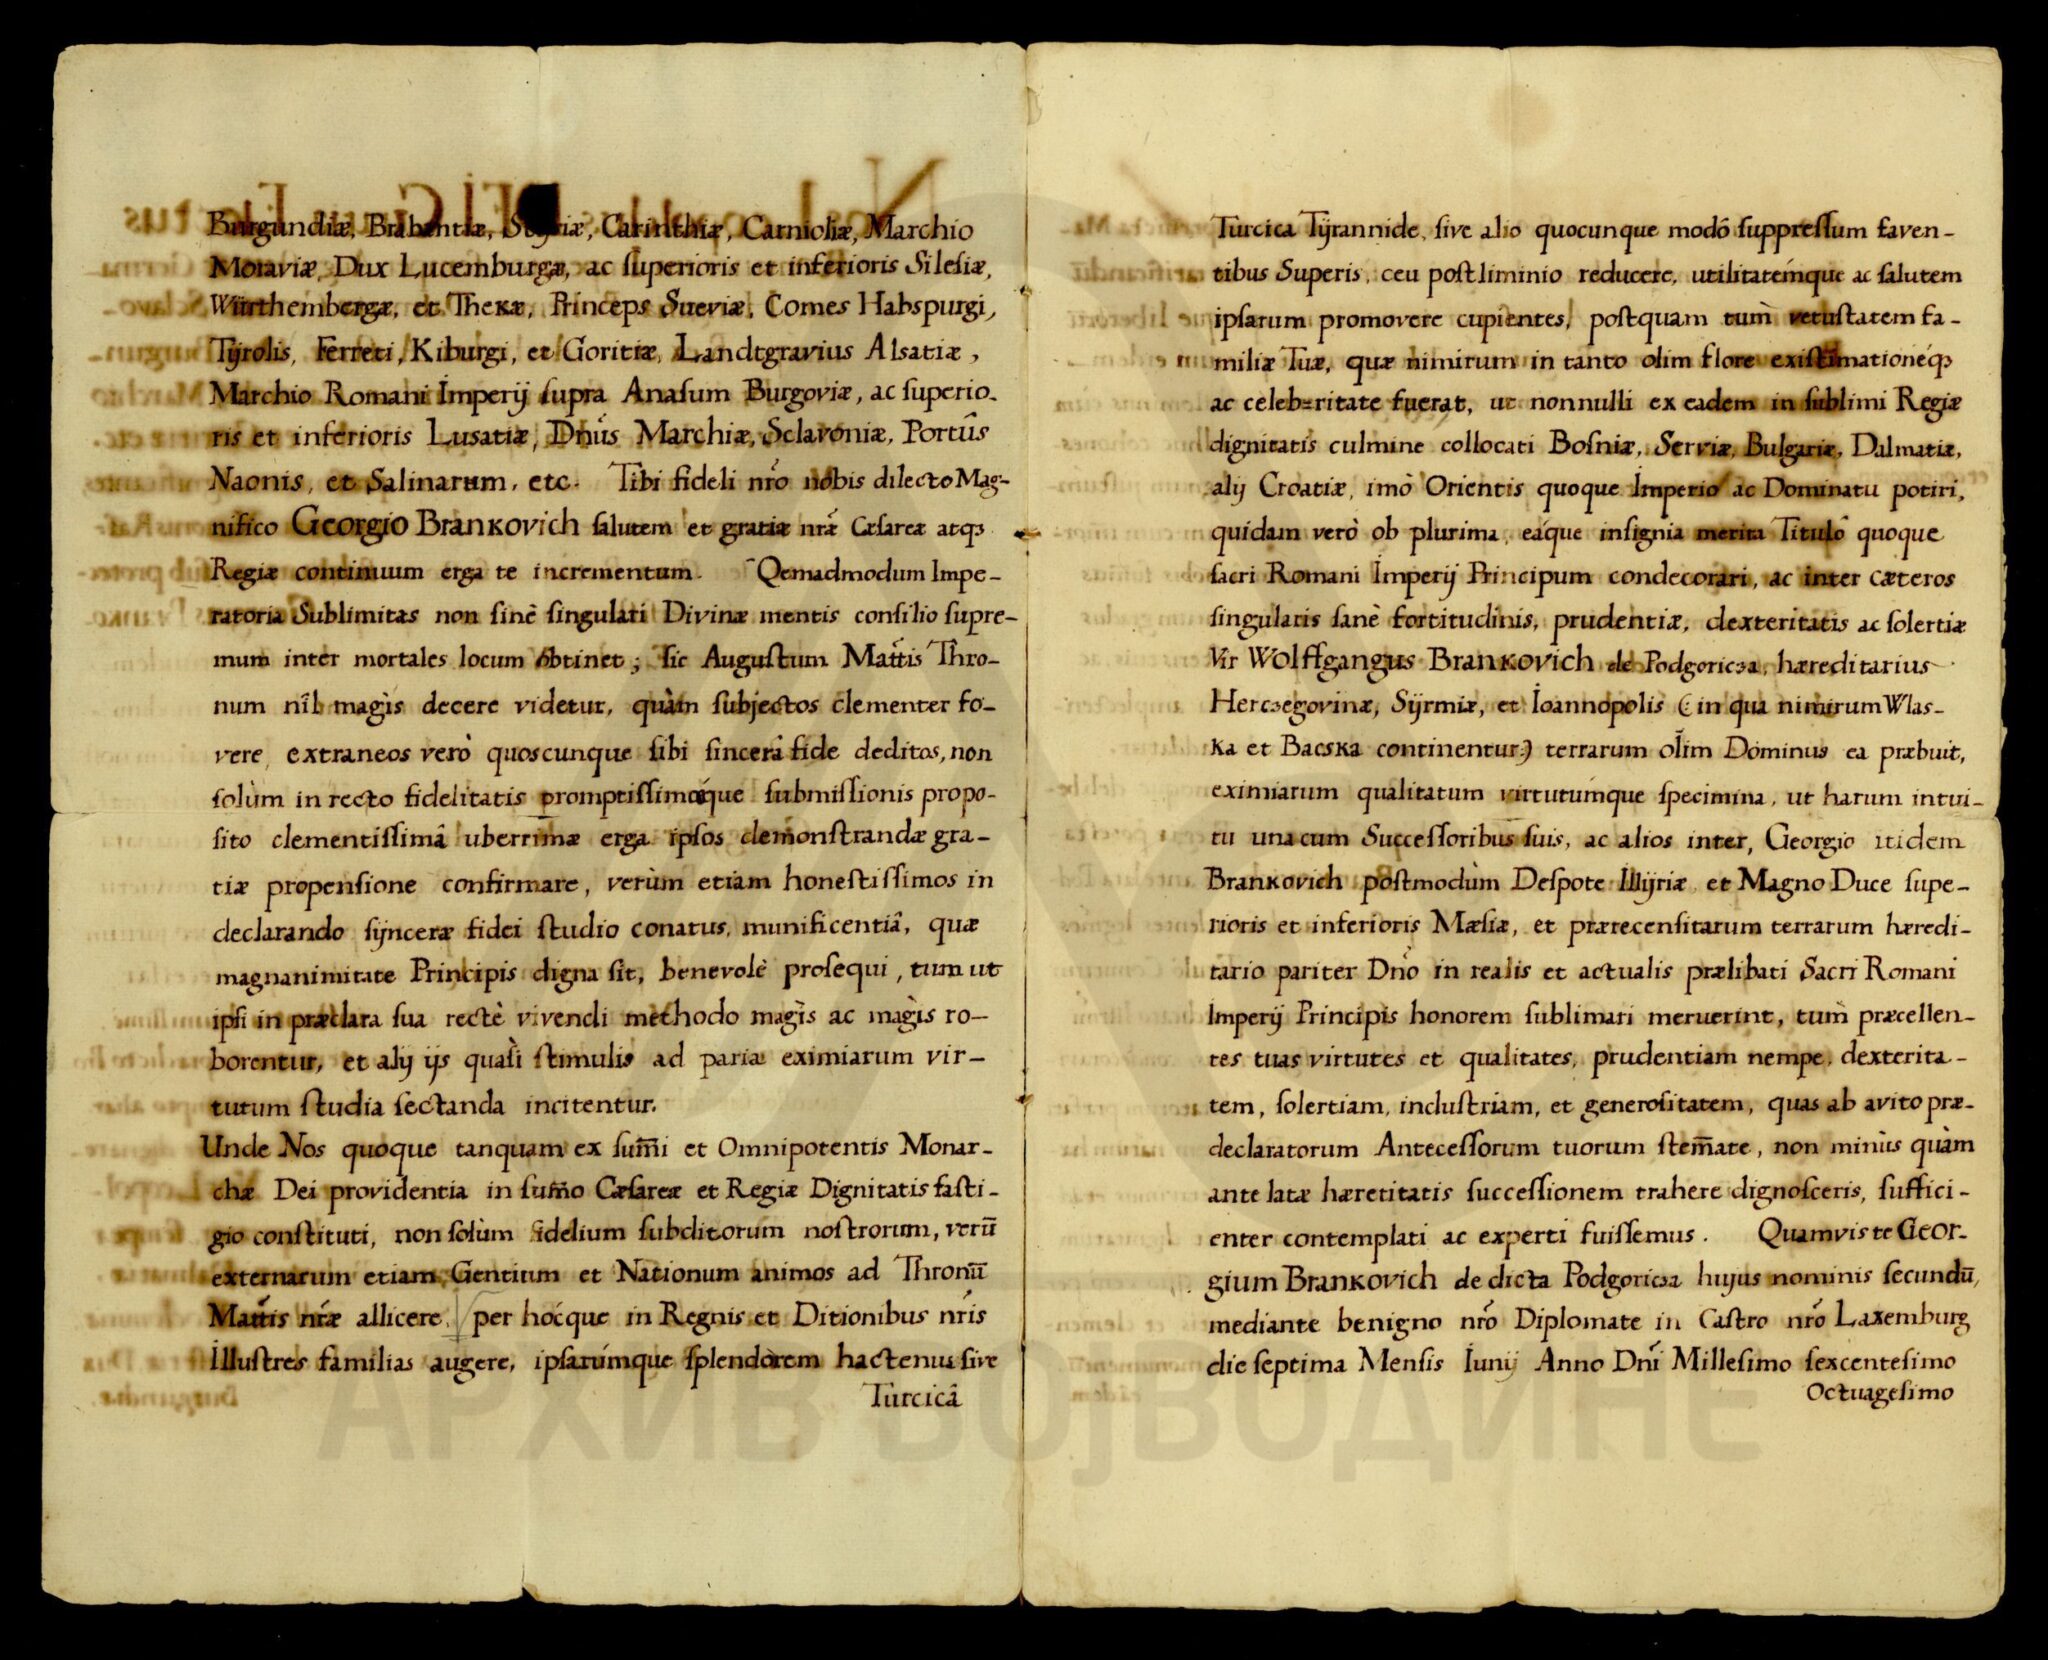 Burgundiæ, Brabantiæ, Styriæ, Carinthiæ, Carnioliæ, Marchio
Moraviæ, Dux Lucemburgæ, ac superioris et inferioris Silesiæ,
Würthembergæ, et Thekæ, Princeps Sueviæ, Comes Habspurgi,
Tÿrolis, Ferreti, Kiburgi, et Goritiæ, Landtgravius Alsatiæ,
Marchio Romani Imperÿ supra Anasum Burgoviæ, ac superio-
ris et inferioris Lusatiæ, Dnús Marchiæ, Sclavoniæ, Portûs
Naonis, et Salinarum, etc. Tibi fideli nŕo nobis dilecto Mag-
nifico Georgio Brankovich salutem et gratiæ nŕæ Cæsareæ atq₃
Regiæ continuum erga te incrementum. Qemadmodum Impe-
ratoria Sublimitas non sinè singulari Divinæ mentis consilio supre-
mum inter mortales locum obtinet; sic Augustum Mattis Thro-
num nîl magìs decere videtur, quàm subjectos clementer fo-
vere, extraneos verò quoscunque sibi sincerâ fide deditos, non
solùm in recto fidelitatis promptissimǽque submissionis propo-
sito clementissimâ uberrimæ erga ipsos demonstrandæ gra-
tiæ propensione confirmare, verùm etiam honestissimos in
declarando sÿnceræ fidei studio conatus, munificentiâ, quæ
magnanimitate Principis digna sit, benevolè prosequi, tum ut
ipsi in præclara sua rectè vivendi methodo magìs ac magìs ro-
borentur, et alÿ ÿs quasì stimulis ad paria eximiarum vir-
tutum studia sectanda incitentur.
Unde Nos quoque tanquam ex sum̃i et Omnipotentis Monar-
chæ Dei providentia in sum̃o Cæsareæ et Regiæ Dignitatis fasti-
gio constituti, non solùm fidelium subditorum nostrorum, verū
externarum etiam Gentium et Nationum animos ad Thronū
Mattis nŕæ allicere, per hocque in Regnis et Ditionibus nŕis
Illustres familias augere, ipsarúmque splendorem hactenus sive
Turcicâ
Turcica Tÿrannide, sive alio quocunque modô suppressum faven-
tibus Superis, ceu postliminio reducere, utilitatémque ac salutem
ipsarum promovere cupientes, postquam tùm vetustatem fa-
miliæ Tuæ, quæ nimirum in tanto olim flore existimationéq₃
ac celeb=ritate fuerat, ut nonnulli ex eadem in sublimi Regiæ
dignitatis culmine collocati Bosniæ, Serviæ, Bulgariæ, Dalmatiæ,
alÿ Croatiæ, imò Orientis quoque Imperio ac Dominatu potiri,
quidam verò ob plurima, eáque insignia merita Titulô quoque
sacri Romani Imperÿ Principum condecorari, ac inter cæteros
singularis sanè fortitudinis, prudentiæ, dexteritatis ac solertiæ
Vir Wolffgangus Brankovich de Podgoricza, hæreditarius
Herczegovinæ, Sÿrmiæ, et Ioannopolis (: in qua nimirum Wlas-
ka et Bacska continentur:) terrarum olim Dominus ea præbuit,
eximiarum qualitatum virtutúmque specimina, ut harum intui-
tu una cum Successoribus suis, ac alios inter, Georgio itidem
Brankovich postmodùm Despote Illÿriæ et Magno Duce supe-
rioris et inferioris Mæsiæ, et prærecensitarum terrarum hæredi-
tario pariter Dnó in realis et actualis prælibati Sacri Romani
Imperÿ Principis honorem sublimari meruerint, tùm præcellen-
tes tuas virtutes et qualitates, prudentiam nempe, dexterita-
tem, solertiam, industriam, et generositatem, quas ab avito præ-
declaratorum Antecessorum tuorum stem̃ate, non minùs quàm
ante latæ hæretitatis successionem trahere dignosceris, suffici-
enter contemplati ac experti fuissemus. Quamvis te Geor-
gium Brankovich de dicta Podgoricza hujus nominis secundū,
mediante benigno nŕo Diplomate in Castro nŕo Laxemburg
die septima Mensis Iunÿ Anno Dní Millesimo sexcentesimo
Octuagesimo
АРХИВ ВОЈВОДИНЕ